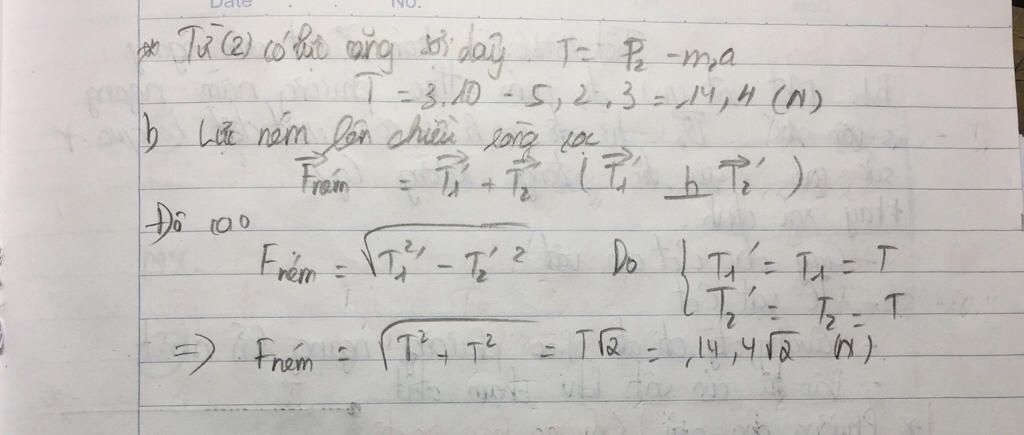 Date No.
Từ (2) có lực căng sợi dây T = P₂ - m₂a
T = 3.10 - 5,2.3 = 14,4 (N)
b) Lực ném lên chiếu ròng rọc
F⃗ném = T⃗₁' + T⃗₂' (T⃗₁' ⊥ T⃗₂')
Độ cao
Fném = √(T₁²' - T₂'²) Do { T₁' = T₁ = T
T₂' = T₂ = T
=> Fném = √(T² + T²) = T√2 = 14,4√2 (N)